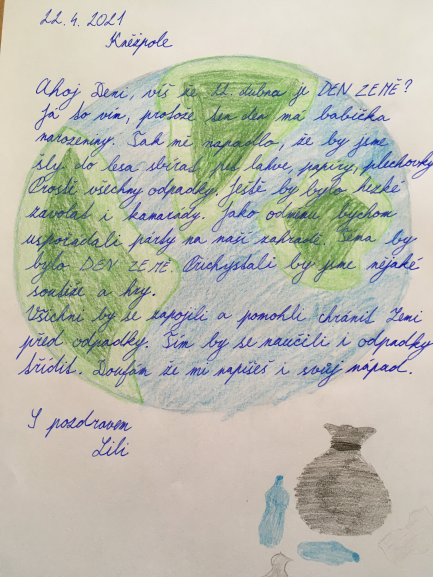 22.4.2021
Kněžpole
Ahoj Deni, víš že 22. dubna je DEN ZEMĚ?
Já to vím, protože ten den má babička
narozeniny. Tak mě napadlo, že by jsme
šly do lesa sbírat pet lahve, papíry, plechovky
Prostě všechny odpadky. Ještě by bylo hezké
zavolat i kamarády. Jako odměnu bychom
uspořádali party na naší zahradě. Téma by
bylo DEN ZEMĚ. Přichystali by jsme nějaké
soutěže a hry.
Všichni by se zapojili a pomohli chránit Zemi
před odpadky. Tím by se naučili i odpadky
třídit. Doufám že mi napíšeš i svůj nápad.
S pozdravem
Lili